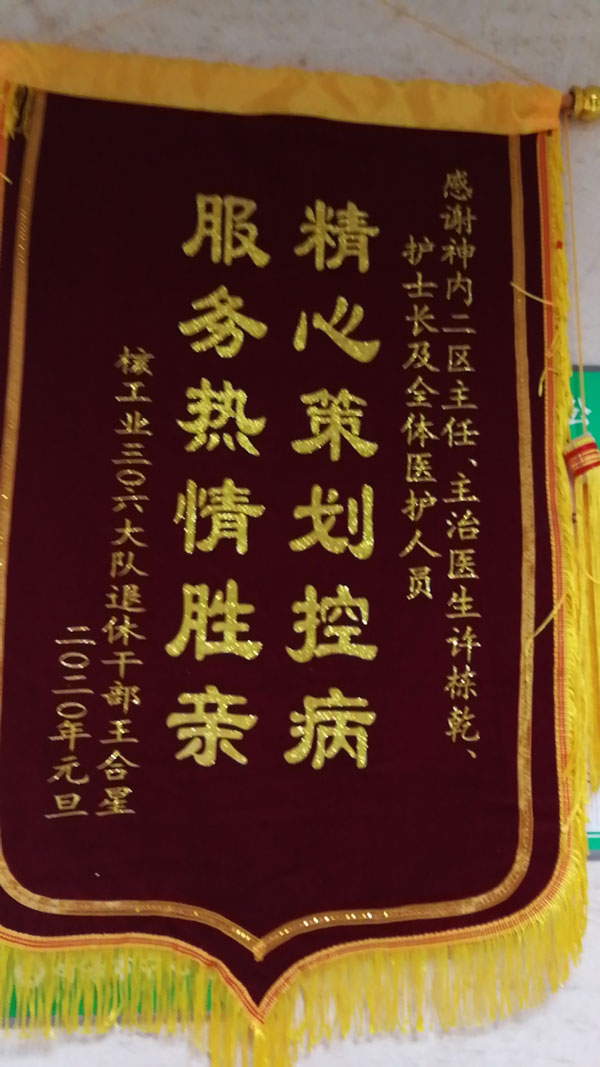 感谢神内二区主任、主治医生许栋乾、
护士长及全体医护人员
精心策划控病
服务热情胜亲
核工业二〇六大队退休干部王合星
二〇二〇年元旦
公